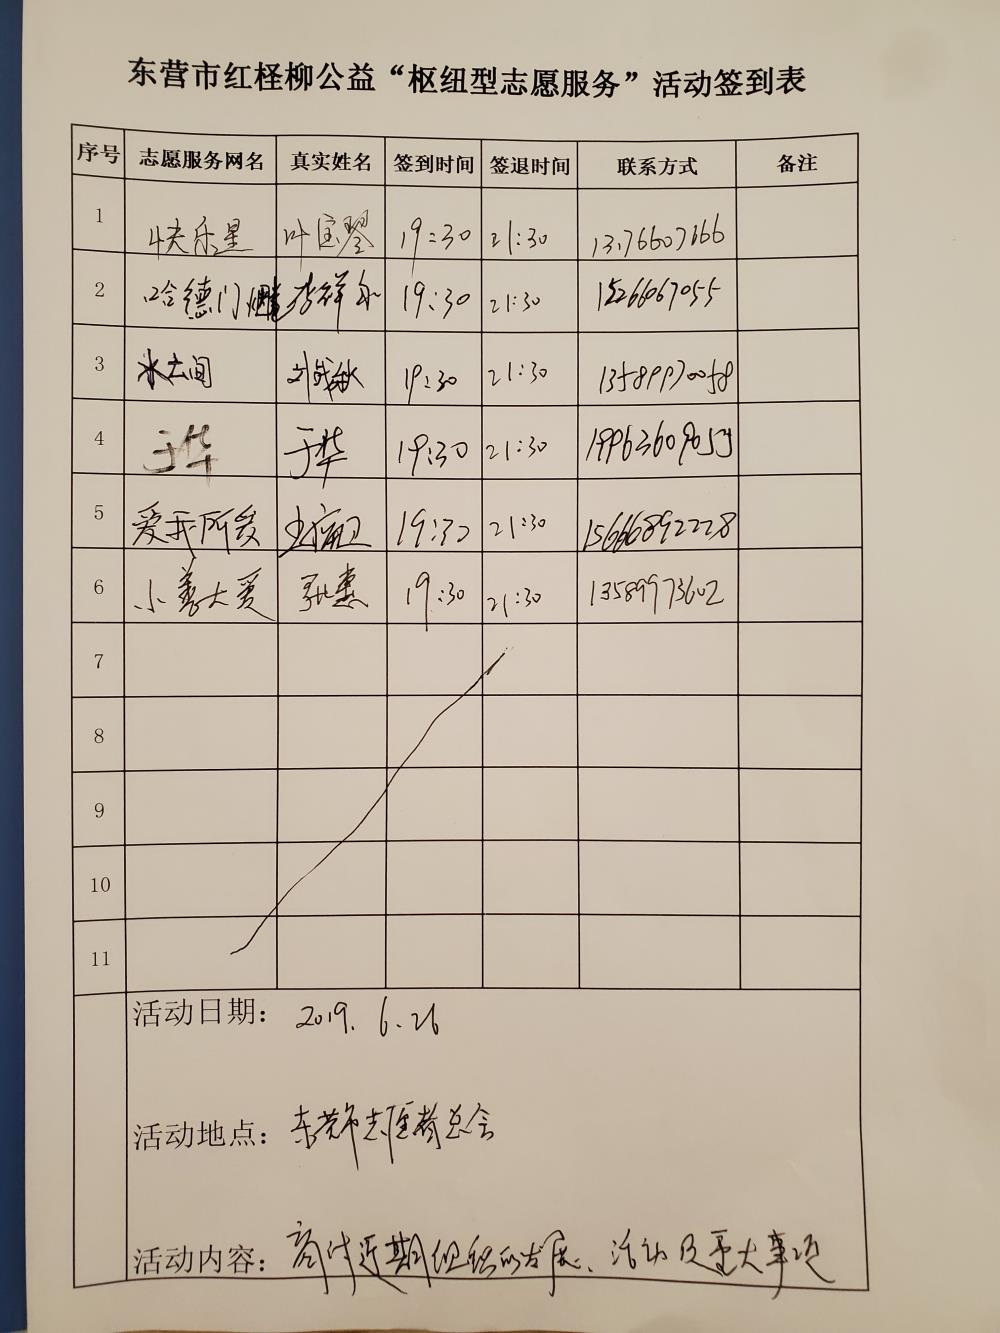 东营市红柽柳公益“枢纽型志愿服务”活动签到表
序号 志愿服务网名 真实姓名 签到时间 签退时间 联系方式 备注
1 快乐星 叶宝琴 19:30 21:30
2 哈德门 李祥 19:30 21:30 15266067055
3 水云间 刘 19:30 21:30 13589970058
4 于华 于华 19:30 21:30
5 爱我所爱 19:30 21:30 15666892228
6 小善大爱 惠 19:30 21:30 13589973602
7
8
9
10
11
活动日期: 2019.6.26
活动地点: 东营市志愿者总会
活动内容: 商讨近期组织的发展、活动及重大事项